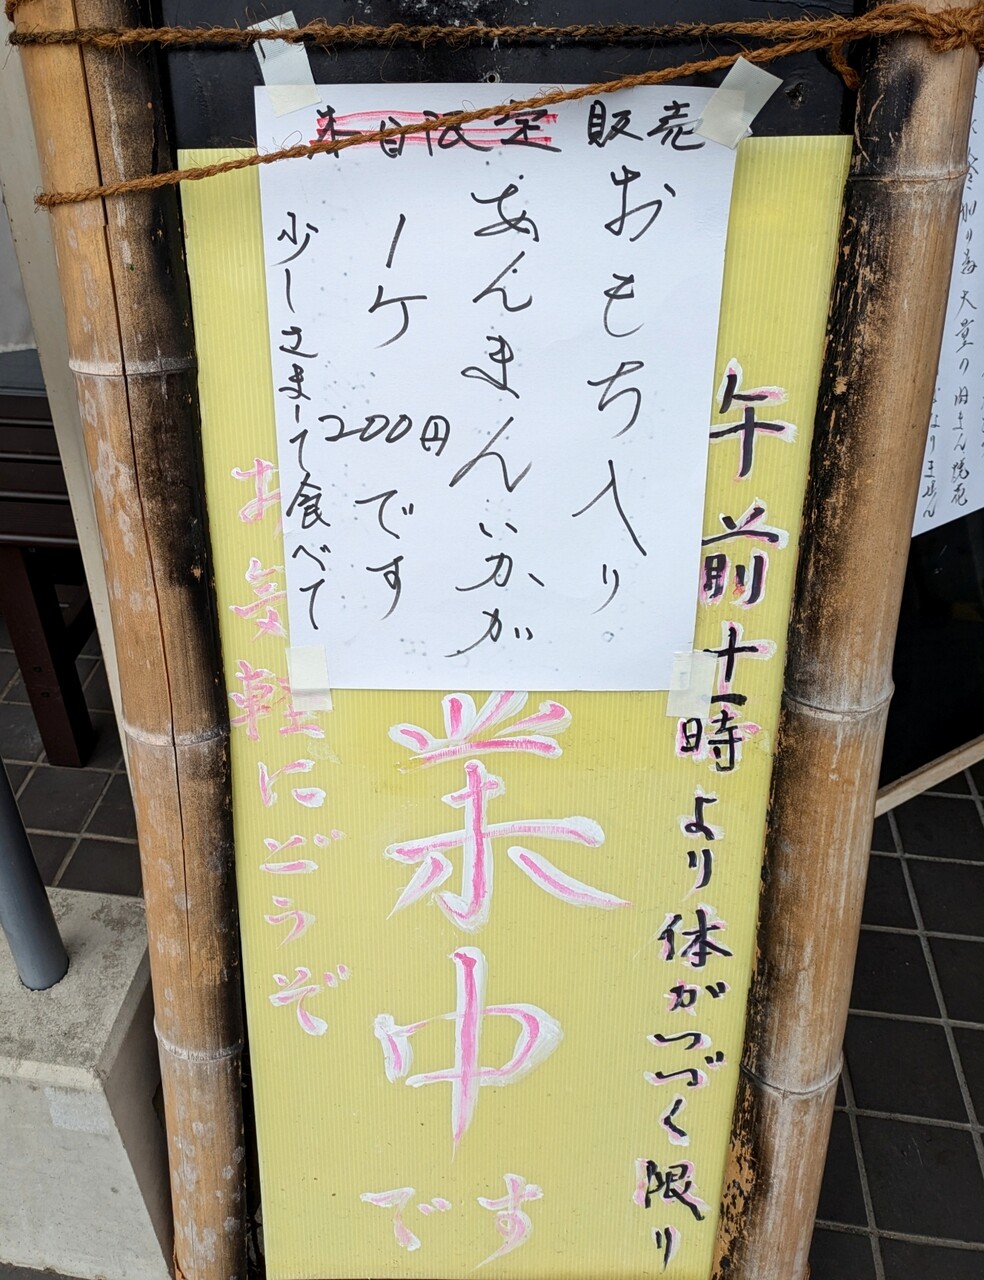 本日限定 販売
おもち入り
あんまんいかが
1ケ
200円
です
少しさまーて食べて
午前十一時より体がつづく限り
業中
です
お気軽にどうぞ